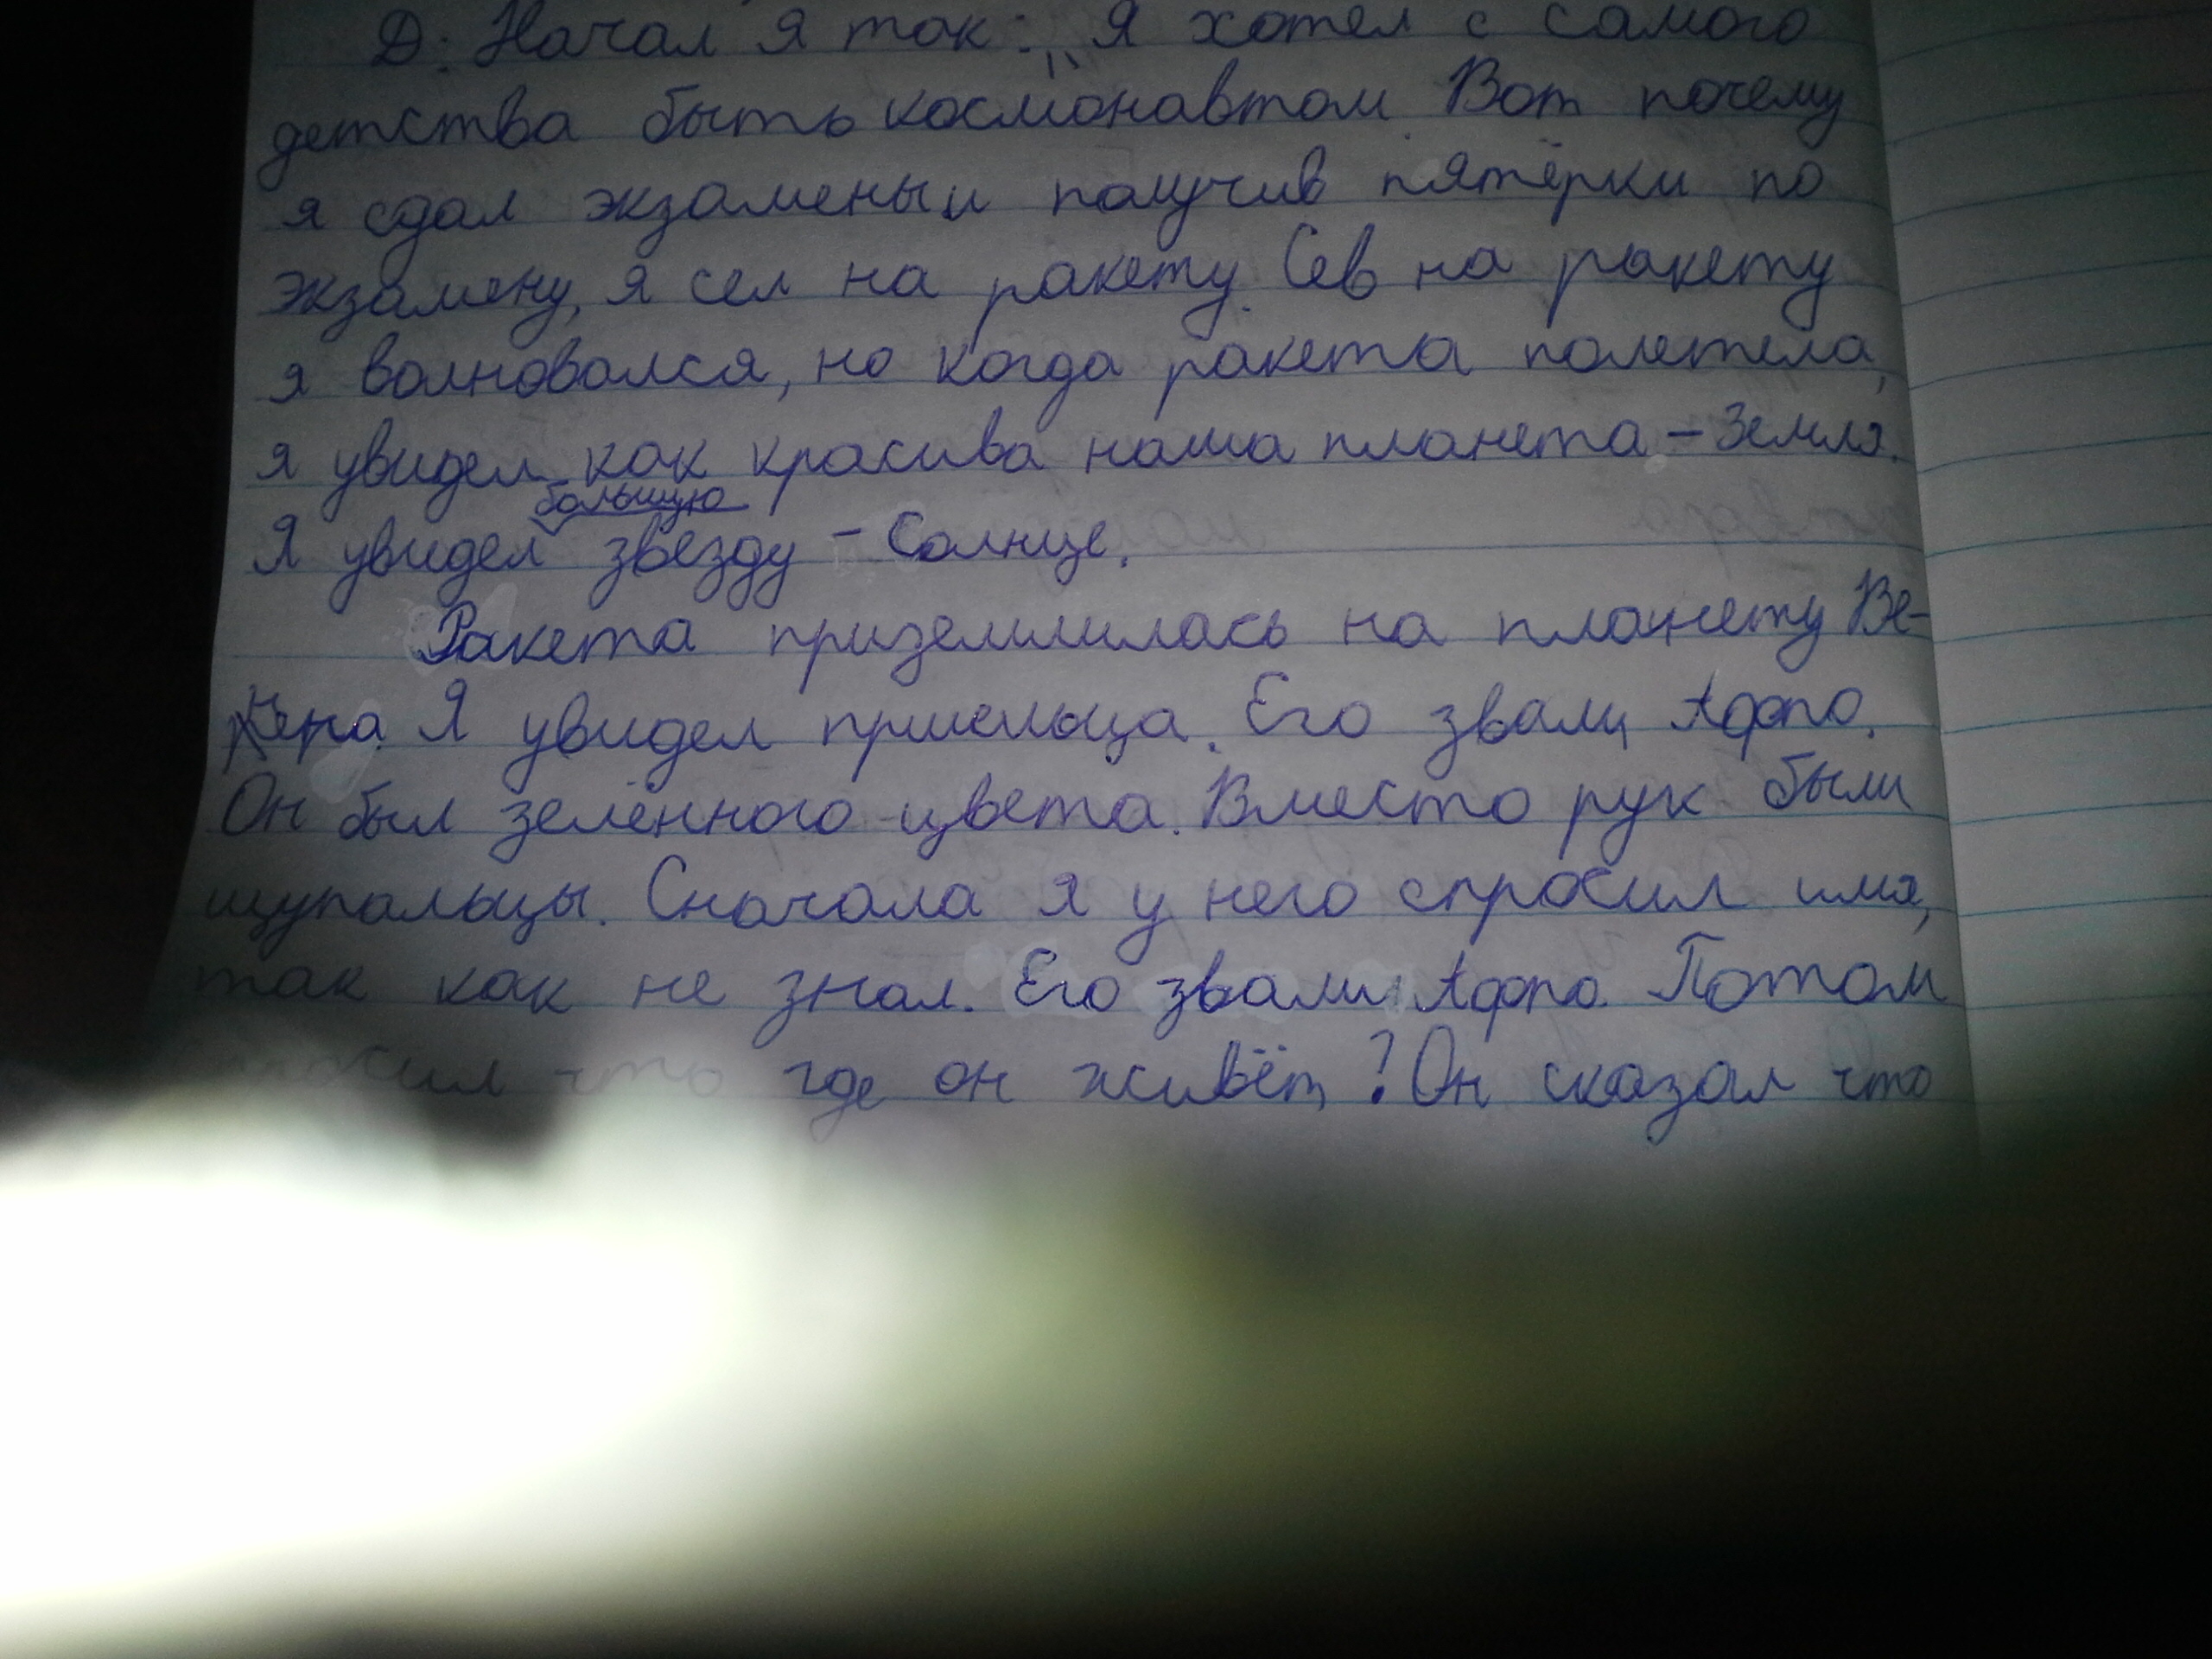 Д: Начал я так: „Я хотел с самого
детства быть космонавтом. Вот почему
я сдал экзамены и получив пятёрки по
экзамену, я сел на ракету. Сев на ракету
я волновался, но когда ракета полетела,
я увидел как красива наша планета – Земля.
большую
Я увидел звезду – Солнце.
Ракета приземлилась на планету Ве-
нера. Я увидел пришельца. Его звали Афро.
Он был зелённого цвета. Вместо рук были
щупальцы. Сначала я у него спросил имя,
так как не знал. Его звали Афро. Потом
что где он живёт? Он сказал что